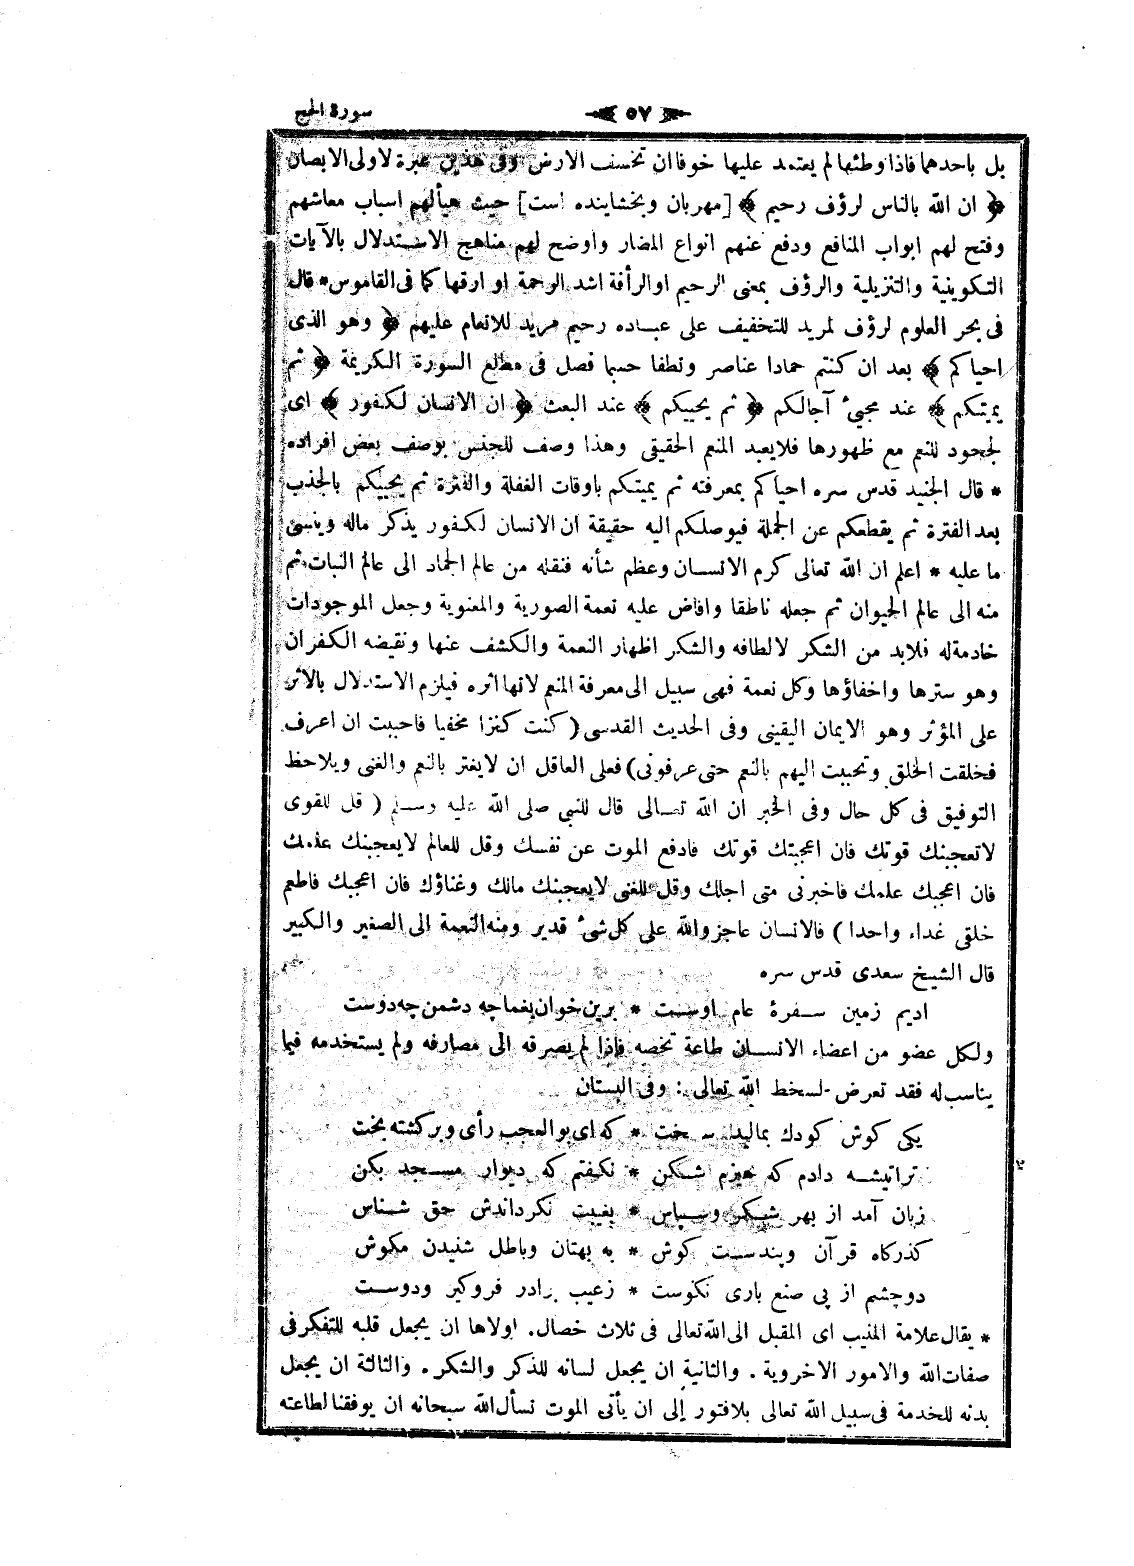 سورة الحج
٥٧
بل باحدهما فاذا وطئها لم يعتمد عليها خوفا ان تخسف الارض وفى هذين عبرة لاولى الابصار
﴿ ان الله بالناس لرؤف رحيم ﴾ [مهربان وبخشاينده است] حيث هيألهم اسباب معاشهم
وفتح لهم ابواب المنافع ودفع عنهم انواع المضار واوضح لهم مناهج الاستدلال بالآيات
التكوينية والتنزيلية والرؤف بمعنى الرحيم او الرأفة اشد الرحمة او ارقها كما فى القاموس * قال
فى بحر العلوم لرؤف لمريد للتخفيف على عباده رحيم مريد للانعام عليهم ﴿ وهو الذى
احياكم ﴾ بعد ان كنتم جمادا عناصر ونطفا حسبما فصل فى مطالع السورة الكريمة ﴿ ثم
يميتكم ﴾ عند مجيئ آجالكم ﴿ ثم يحييكم ﴾ عند البعث ﴿ ان الانسان لكفور ﴾ اى
لجحود للنعم مع ظهورها فلايعبد المنعم الحقيقى وهذا وصف للجنس بوصف بعض افراده
* قال الجنيد قدس سره احياكم بمعرفته ثم يميتكم باوقات الغفلة والفترة ثم يحييكم بالجذب
بعد الفترة ثم يقطعكم عن الجملة فيوصلكم اليه حقيقة ان الانسان لكفور يذكر ماله وينسى
ما عليه * اعلم ان الله تعالى كرم الانسان وعظم شأنه فنقله من عالم الجماد الى عالم النبات ثم
منه الى عالم الحيوان ثم جعله ناطقا وافاض عليه نعمة الصورية والمعنوية وجعل الموجودات
خادمة له فلابد من الشكر لالطافه والشكر اظهار النعمة والكشف عنها ونقيضه الكفران
وهو سترها واخفاؤها وكل نعمة فهى سبيل الى معرفة المنعم لانها اثره فيلزم الاستدلال بالاثر
على المؤثر وهو الايمان اليقينى وفى الحديث القدسى ( كنت كنزا مخفيا فاحببت ان اعرف
فخلقت الخلق وتحببت اليهم بالنعم حتى عرفونى ) فعلى العاقل ان لايغتر بالنعم والغنى ويلاحظ
التوفيق فى كل حال وفى الخبر ان الله تعالى قال للنبي صلى الله عليه وسلم ( قل للقوى
لاتعجبنك قوتك فان اعجبتك قوتك فادفع الموت عن نفسك وقل للعالم لايعجبنك علمك
فان اعجبك علمك فاخبرنى متى اجلك وقل للغنى لايعجبنك مالك وغناؤك فان اعجبك فاطعم
خلقى غداء واحدا ) فالانسان عاجز والله على كل شئ قدير ومنه النعمة الى الصغير والكبير
قال الشيخ سعدى قدس سره
اديم زمين سفرۀ عام اوست * برين خوان يغما چه دشمن چه دوست
ولكل عضو من اعضاء الانسان طاعة تخصه فاذا لم يصرفه الى مصارفه ولم يستخدمه فيما
يناسب له فقد تعرض لسخط الله تعالى : وفى البستان
يكى كوش كودك بماليد سخت * كه اى بو العجب رأى وبركشته بخت
ترا تيشه دادم كه هيزم شكن * نكفتم كه ديوار مسجد بكن
زبان آمد از بهر شكر وسپاس * بغيبت نكرداندش حق شناس
كذركاه قرآن وپندست كوش * به بهتان وباطل شنيدن مكوش
دو چشم از پى صنع بارى نكوست * زعيب برادر فروكير ودوست
* يقال علامة المنيب اى المقبل الى الله تعالى فى ثلاث خصال. اولاها ان يجعل قلبه للتفكر فى
صفات الله والامور الاخروية . والثانية ان يجعل لسانه للذكر والشكر . والثالثة ان يجعل
بدنه للخدمة فى سبيل الله تعالى بلافتور إلى ان يأتى الموت نسأل الله سبحانه ان يوفقنا لطاعته